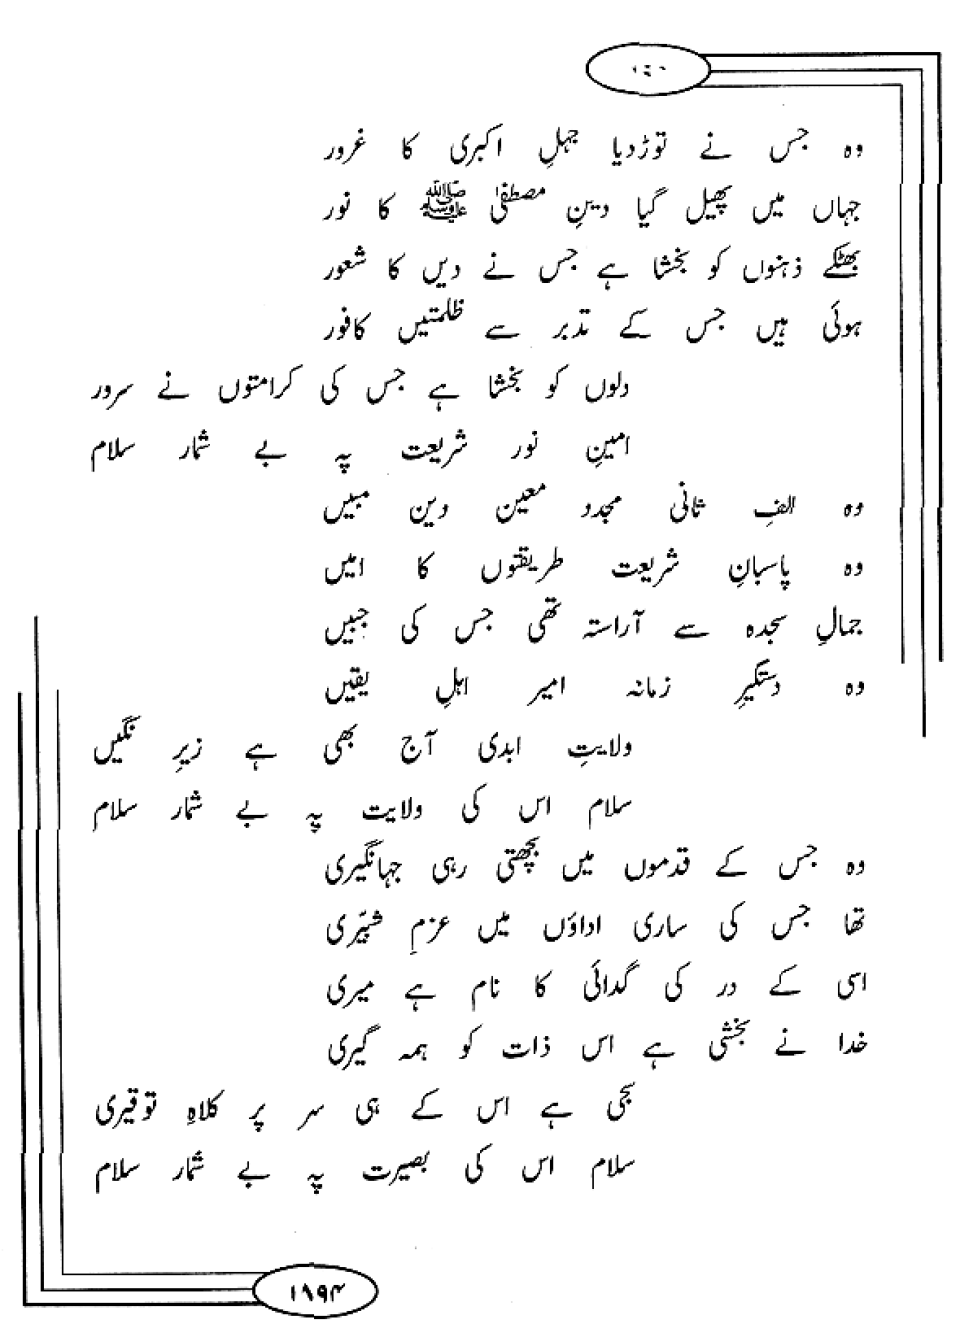 وہ جس نے توڑ دیا جہلِ اکبری کا غرور
جہاں میں پھیل گیا دینِ مصطفیٰ ﷺ کا نور
بھٹکے ذہنوں کو بخشا ہے جس نے دیں کا شعور
ہوئی ہیں جس کے تدبر سے ظلمتیں کافور
دلوں کو بخشا ہے جس کی کرامتوں نے سرور
امینِ نور شریعت پہ بے شمار سلام
وہ الفِ ثانی مجدد معین دین مبیں
وہ پاسبانِ شریعت طریقتوں کا امیں
جمالِ سجدہ سے آراستہ تھی جس کی جبیں
وہ دستگیرِ زمانہ امیر اہلِ یقیں
ولایتِ ابدی آج بھی ہے زیرِ نگیں
سلام اس کی ولایت پہ بے شمار سلام
وہ جس کے قدموں میں بچھتی رہی جہانگیری
تھا جس کی ساری اداؤں میں عزمِ شبیّری
اسی کے در کی گدائی کا نام ہے میری
خدا نے بخشی ہے اس ذات کو ہمہ گیری
سجی ہے اس کے ہی سر پر کلاہِ توقیری
سلام اس کی بصیرت پہ بے شمار سلام
۱۸۹۴